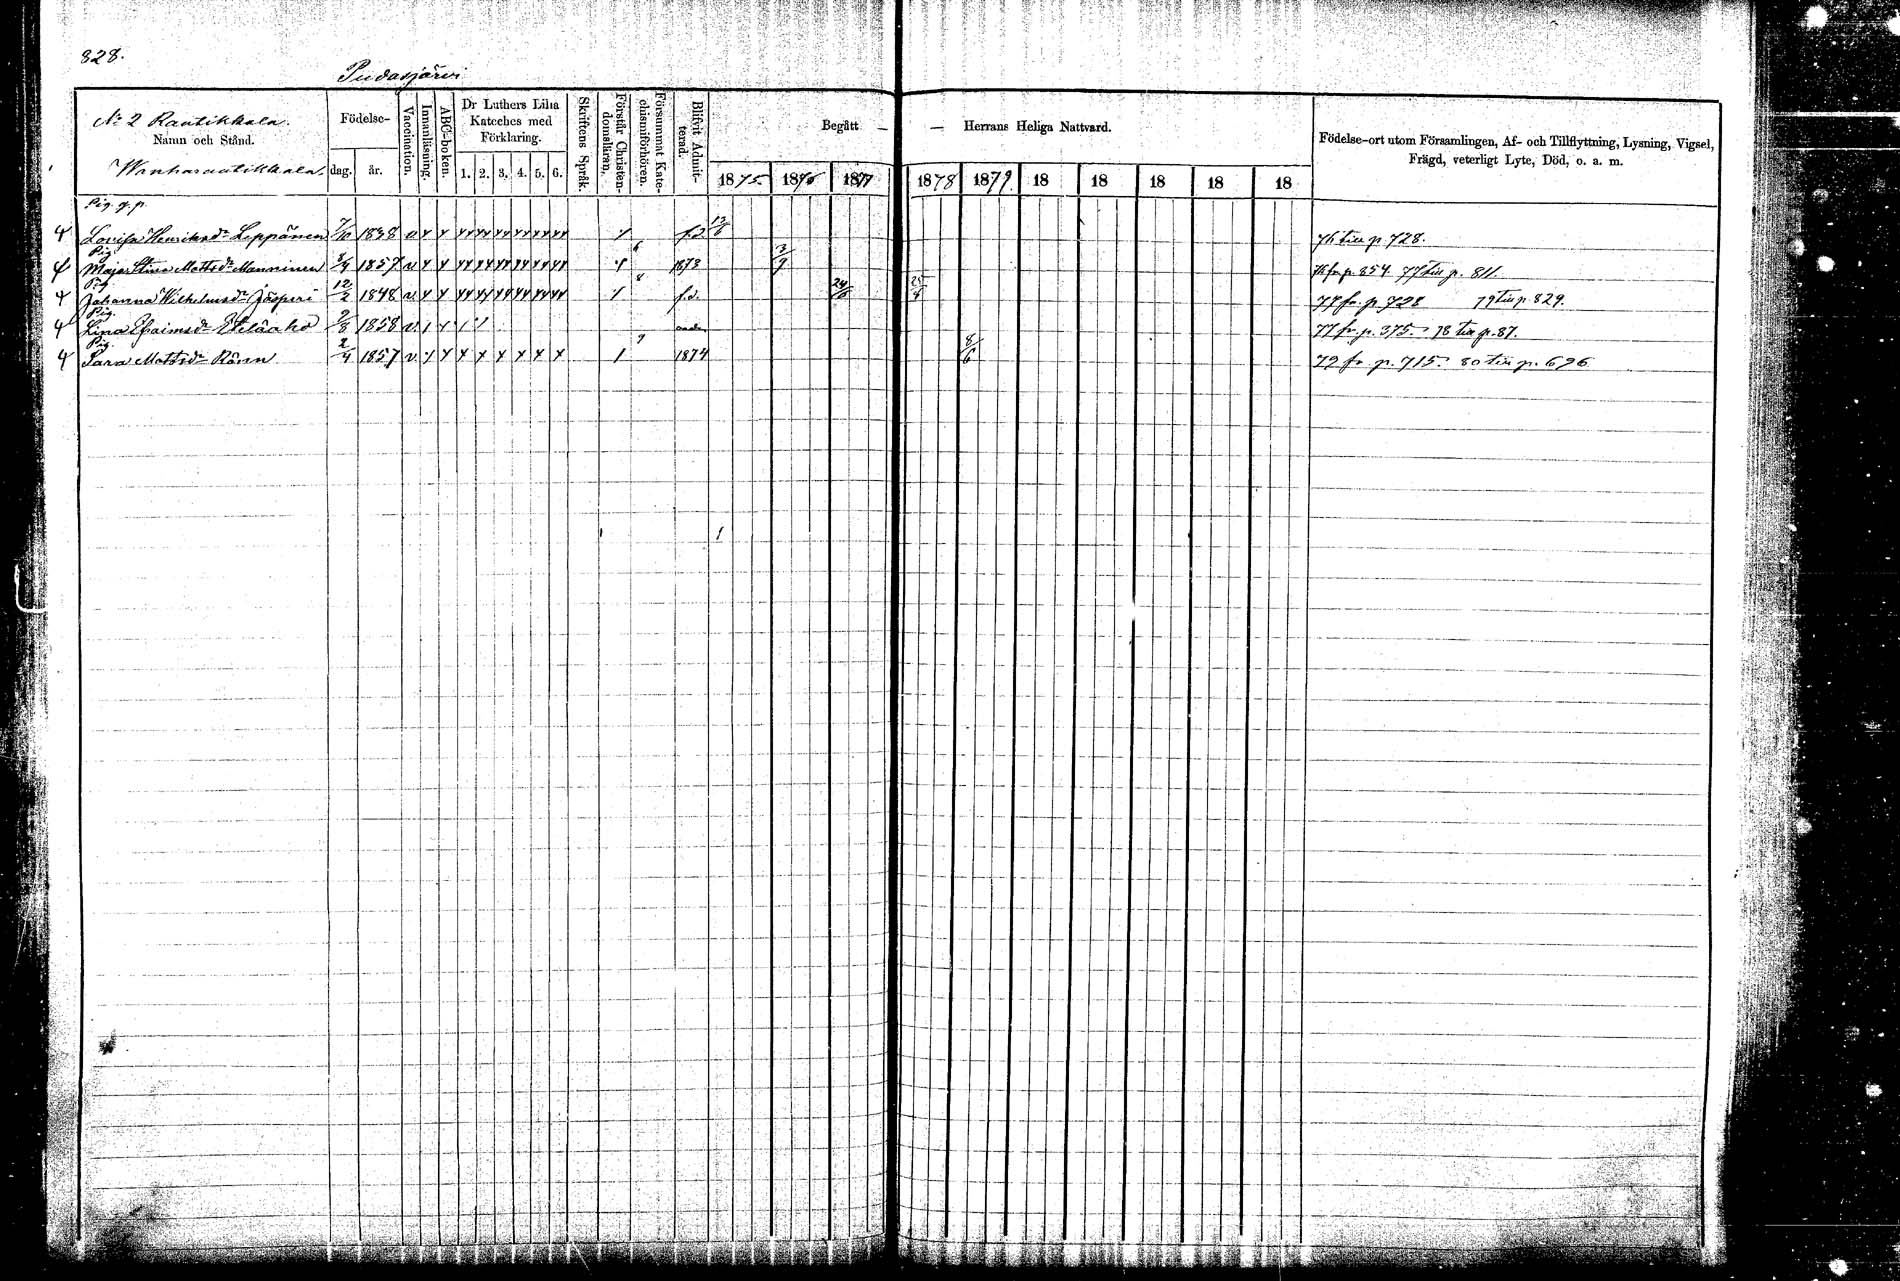 828.
Pudasjärvi
No 2 Rautikkala.
Namn och Stånd.
Wanharautikkala.
Födelse-
dag. år.
Vaccination.
Innanläsning.
ABC-boken.
Dr Luthers Lilla
Kateches med
Förklaring.
1. 2. 3. 4. 5. 6.
Skriftens Språk.
Förstår Christen-
domsläran.
Försummat Kate-
chismiförhören.
Blifvit Admit-
terad.
Begått — — Herrans Heliga Nattvard.
1875. 1876 1877 1878 1879. 18 18 18 18 18
Födelse-ort utom Församlingen, Af- och Tillflyttning, Lysning, Vigsel,
Frägd, veterligt Lyte, Död, o. a. m.
Pig. g. p.
Lovisa Henriksdr Leppänen 7/10 1838 v. f.d. 12/6 76 till p 728.
Pig.
Maja Stina Mattsdr Manninen 8/4 1857 v. 6 1873 3/9 76 fr. p. 854. 77 till p. 811.
Pig
Johanna Wilhelmsdr Jäsperi 12/2 1848 v. 8 f.d. 24/6 25/4 77 fr. p 728 79 till p 829.
Pig.
Lina Efraimsdr Eteläaho 2/8 1858 v. 77 fr. p. 375. 78 till p. 87.
Pig.
Sara Mattsdr Rönn 2/4 1857 v. 7 1874 8/6 79 fr. p. 715. 80 till p. 696